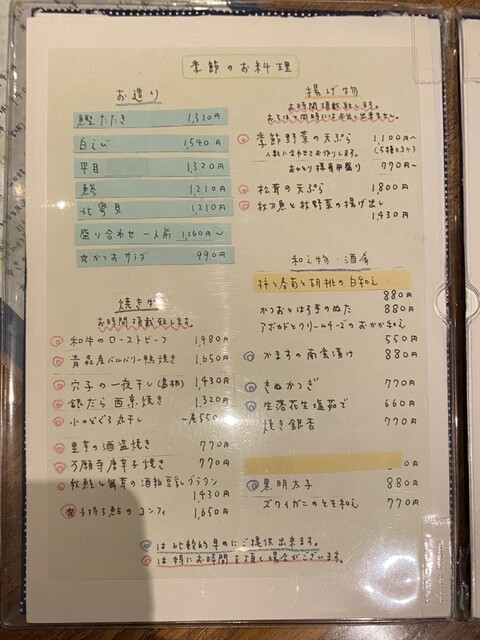 季節のお料理
お造り
鰹たたき 1,320円
白えび 1,540円
平目 1,320円
鯵 1,210円
北寄貝 1,210円
盛り合わせ 一人前 1,260円〜
☆かつおサラダ 990円
焼き物
お時間頂戴致します。
和牛のローストビーフ 1,980円
青森産バルバリー鴨焼き 1,650円
穴子の一夜干し(島根) 1,430円
銀だら西京焼き 1,320円
小のどぐろ丸干し 一尾550
里芋の酒盗焼き 770円
万願寺唐辛子焼き 770円
秋鮭と舞茸の酒粕豆乳グラタン
1,430円
子持ち鮎のコンフィ 1,650円
揚げ物
お時間頂戴致します。
季節野菜の天ぷら 1,100円〜
人数に合わせてお作りします。(5種×2ヶ)
おひとり様専用盛り 770円〜
松茸の天ぷら 1,800円
秋刀魚と秋野菜の揚げ出し
1,430円
和え物・酒肴
柿と春菊と胡桃の白和え
880円
かつおとはろ茅のぬた 880円
アボカドとクリームチーズのおかか和え
550円
かますの南蛮漬け 880円
きぬかつぎ 770円
生落花生塩茹で 660円
焼き銀杏 770円
黒明太子 880円
ズワイガニのとも和え 770円
は比較的早めにご提供出来ます。
は特にお時間を頂く場合がございます。